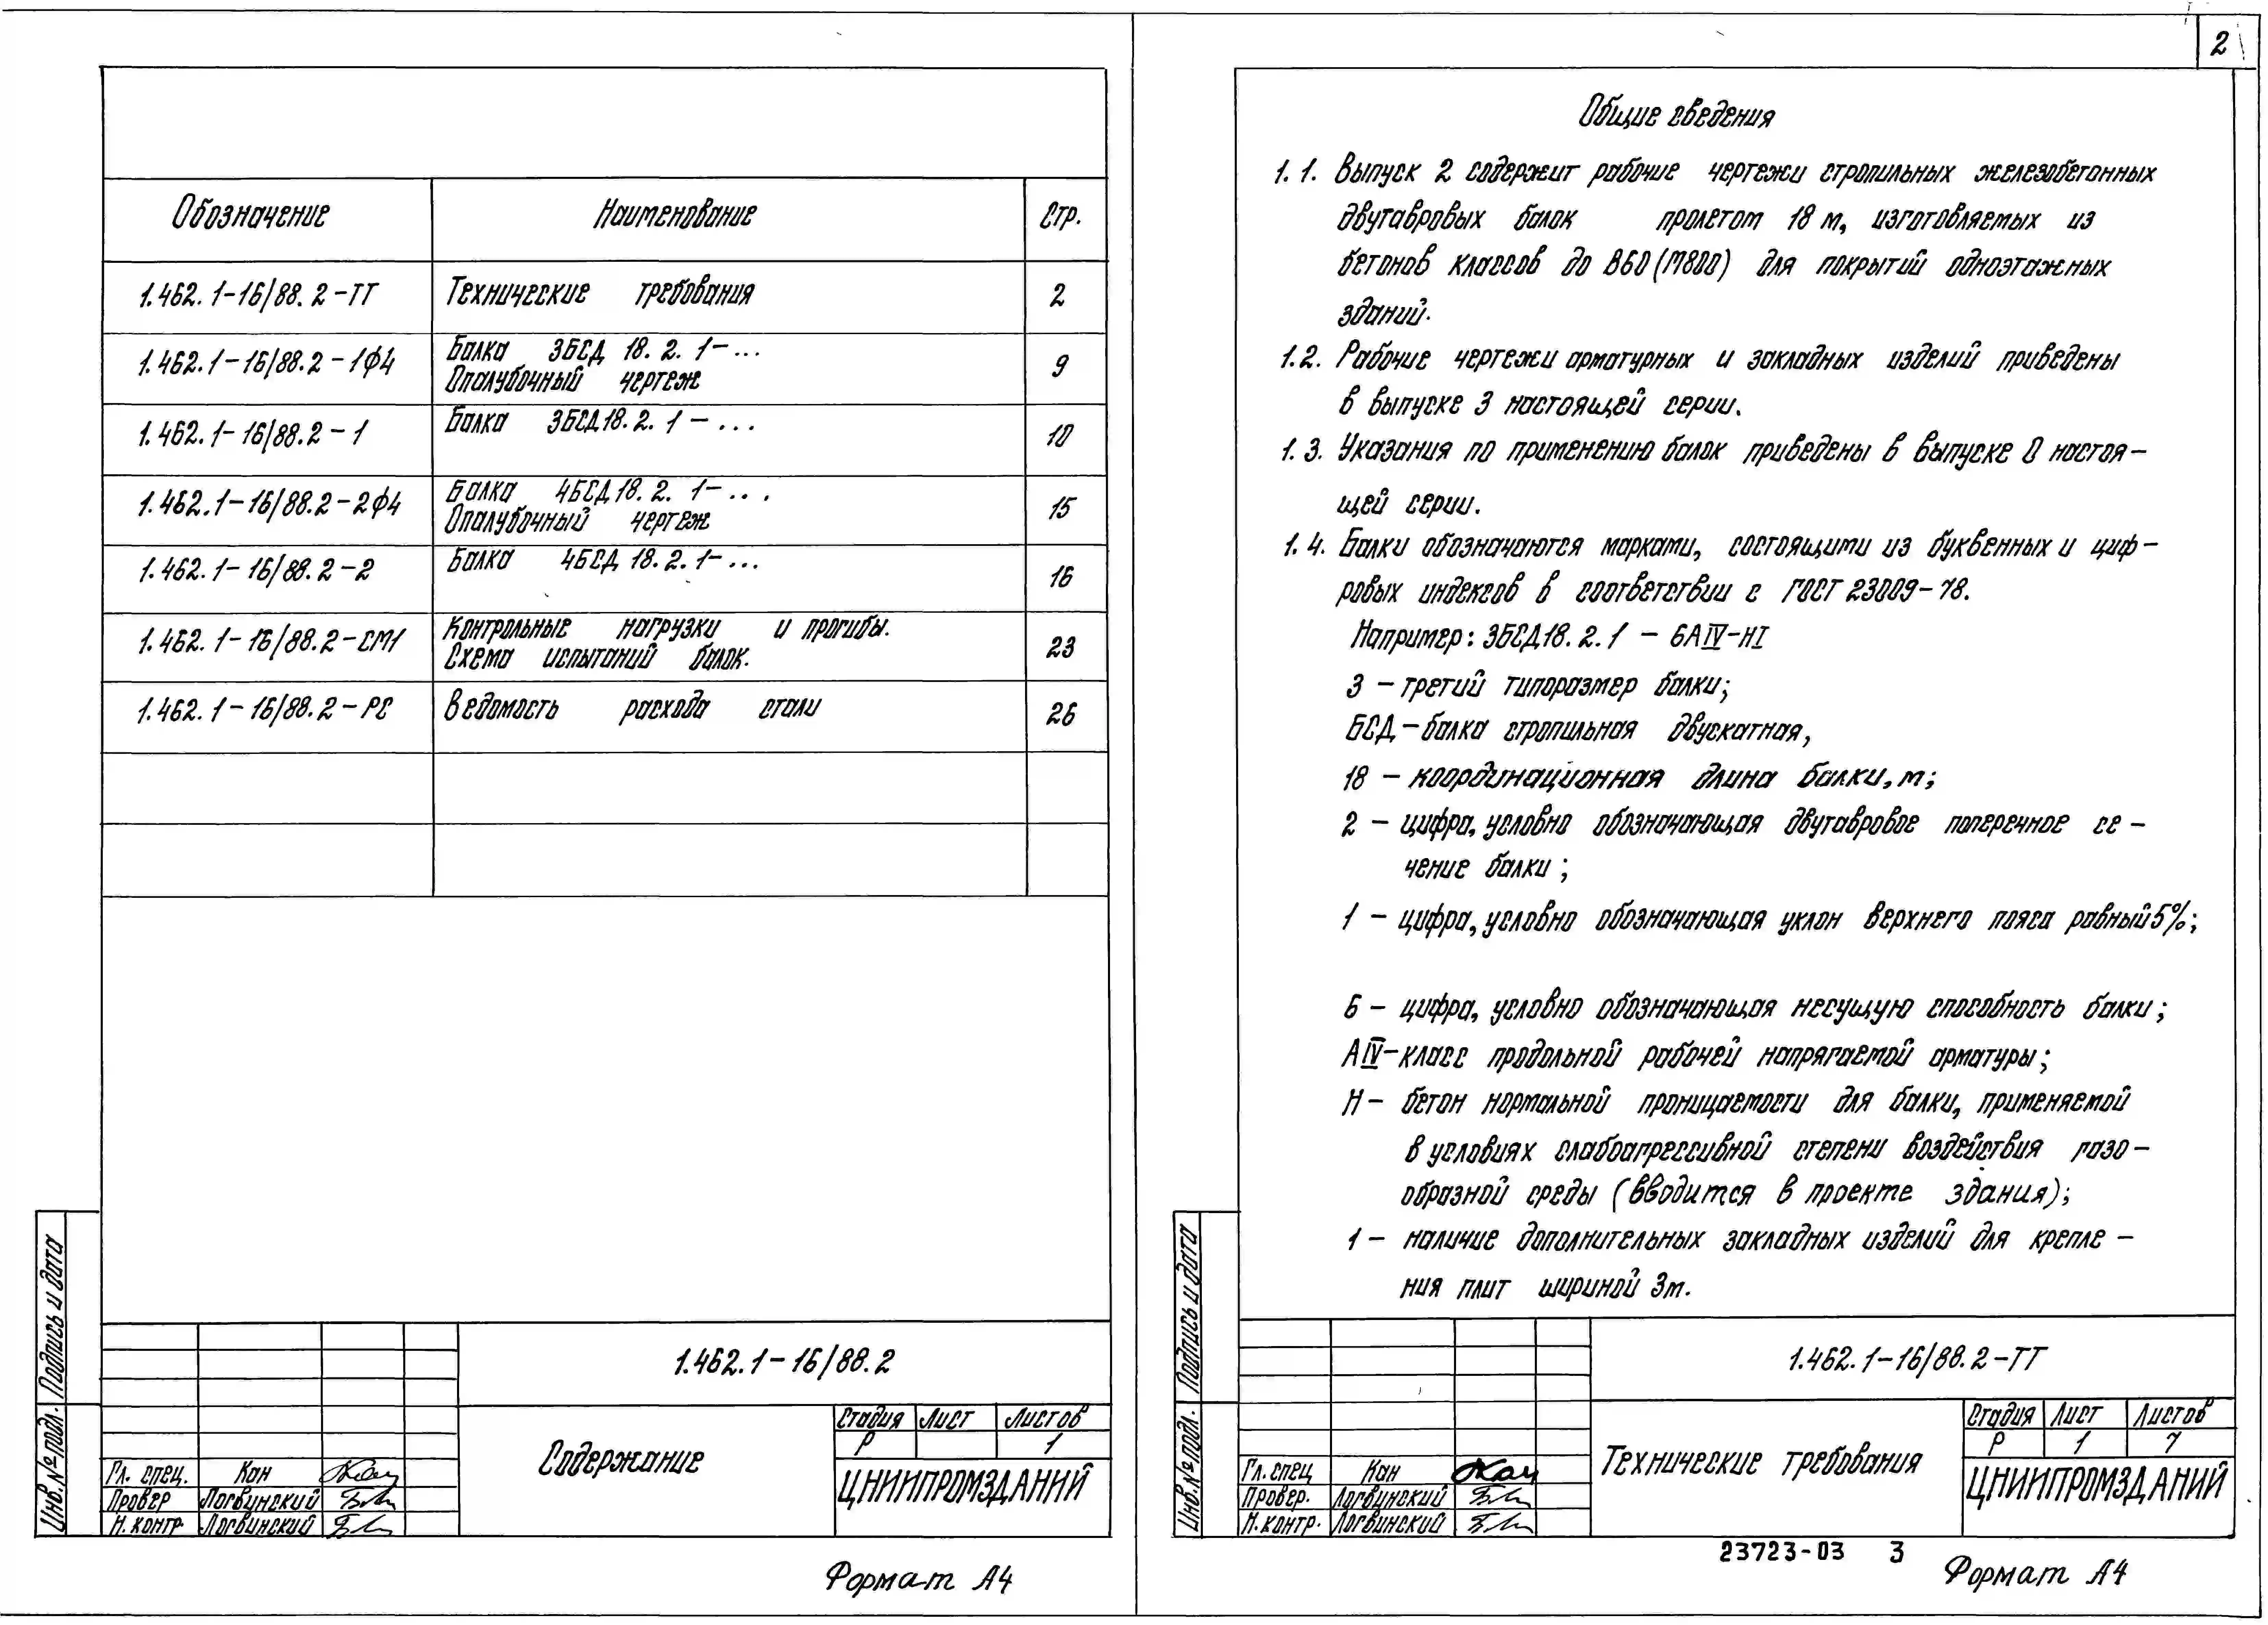 Обозначение Наименование Стр.
1.462.1-16/88.2-ТТ Технические требования 2
1.462.1-16/88.2-1ФЧ Балка 3БСД 18.2.1-...
Опалубочный чертеж 9
1.462.1-16/88.2-1 Балка 3БСД18.2.1-... 10
1.462.1-16/88.2-2ФЧ Балка 4БСД18.2.1-...
Опалубочный чертеж 15
1.462.1-16/88.2-2 Балка 4БСД 18.2.1-... 16
1.462.1-16/88.2-СМ1 Контрольные нагрузки и прогибы.
Схема испытаний балок. 23
1.462.1-16/88.2-РС Ведомость расхода стали 26
Подпись и дата
Инв.№ подл.
1.462.1-16/88.2
Содержание
Стадия Лист Листов
Р 1
ЦНИИПРОМЗДАНИЙ
Гл. спец. Кан
Провер Логвинский
Н. контр. Логвинский
Формат А4
2
Общие сведения
1.1. Выпуск 2 содержит рабочие чертежи стропильных железобетонных
двутавровых балок пролетом 18 м, изготовляемых из
бетонов классов до В60 (М800) для покрытий одноэтажных
зданий.
1.2. Рабочие чертежи арматурных и закладных изделий приведены
в выпуске 3 настоящей серии.
1.3. Указания по применению балок приведены в выпуске 0 настоя-
щей серии.
1.4. Балки обозначаются марками, состоящими из буквенных и циф-
ровых индексов в соответствии с ГОСТ 23009-78.
Например: 3БСД18.2.1 - 6АIV-Н1
3 - третий типоразмер балки;
БСД - балка стропильная двускатная,
18 - координационная длина балки, м;
2 - цифра, условно обозначающая двутавровое поперечное се-
чение балки;
1 - цифра, условно обозначающая уклон верхнего пояса равный 5%;
6 - цифра, условно обозначающая несущую способность балки;
АIV - класс продольной рабочей напрягаемой арматуры;
Н - бетон нормальной проницаемости для балки, применяемой
в условиях слабоагрессивной степени воздействия газо-
образной среды (вводится в проекте здания);
1 - наличие дополнительных закладных изделий для крепле-
ния плит шириной 3м.
Подпись и дата
Инв.№ подл.
1.462.1-16/88.2-ТТ
Технические требования
Стадия Лист Листов
Р 1 7
ЦНИИПРОМЗДАНИЙ
Гл. спец Кан
Провер. Логвинский
Н. контр. Логвинский
23723-03 3
Формат А4